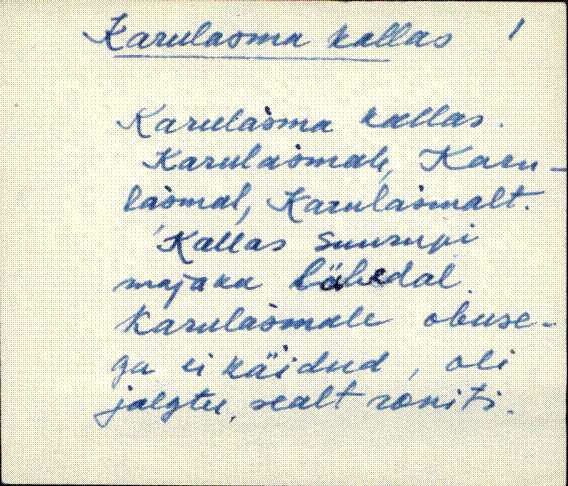 Karulasma kallas 1
Karulaśma kallas.
Karulaśmale, Karu-
laśmal, Karulaśmalt.
'Kallas Suurupi
majaka lähedal.
Karulaśmale obuse-
ga ei käidud, oli
jalgtee, sealt roniti.